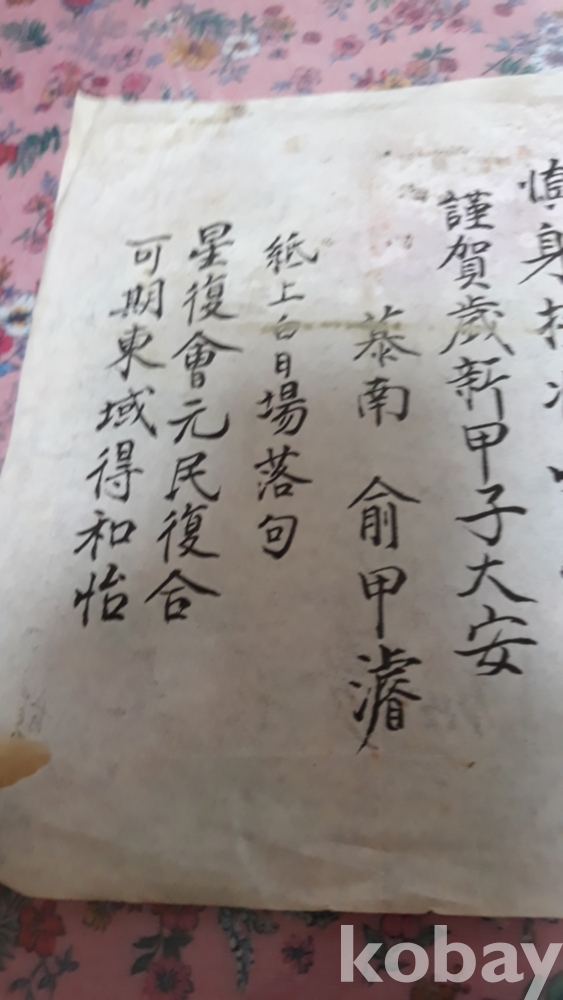 身
謹賀歲新甲子大安
慕南 俞甲濬
紙上白日場落句
星復會元民復合
可期東域得和怡
kobay